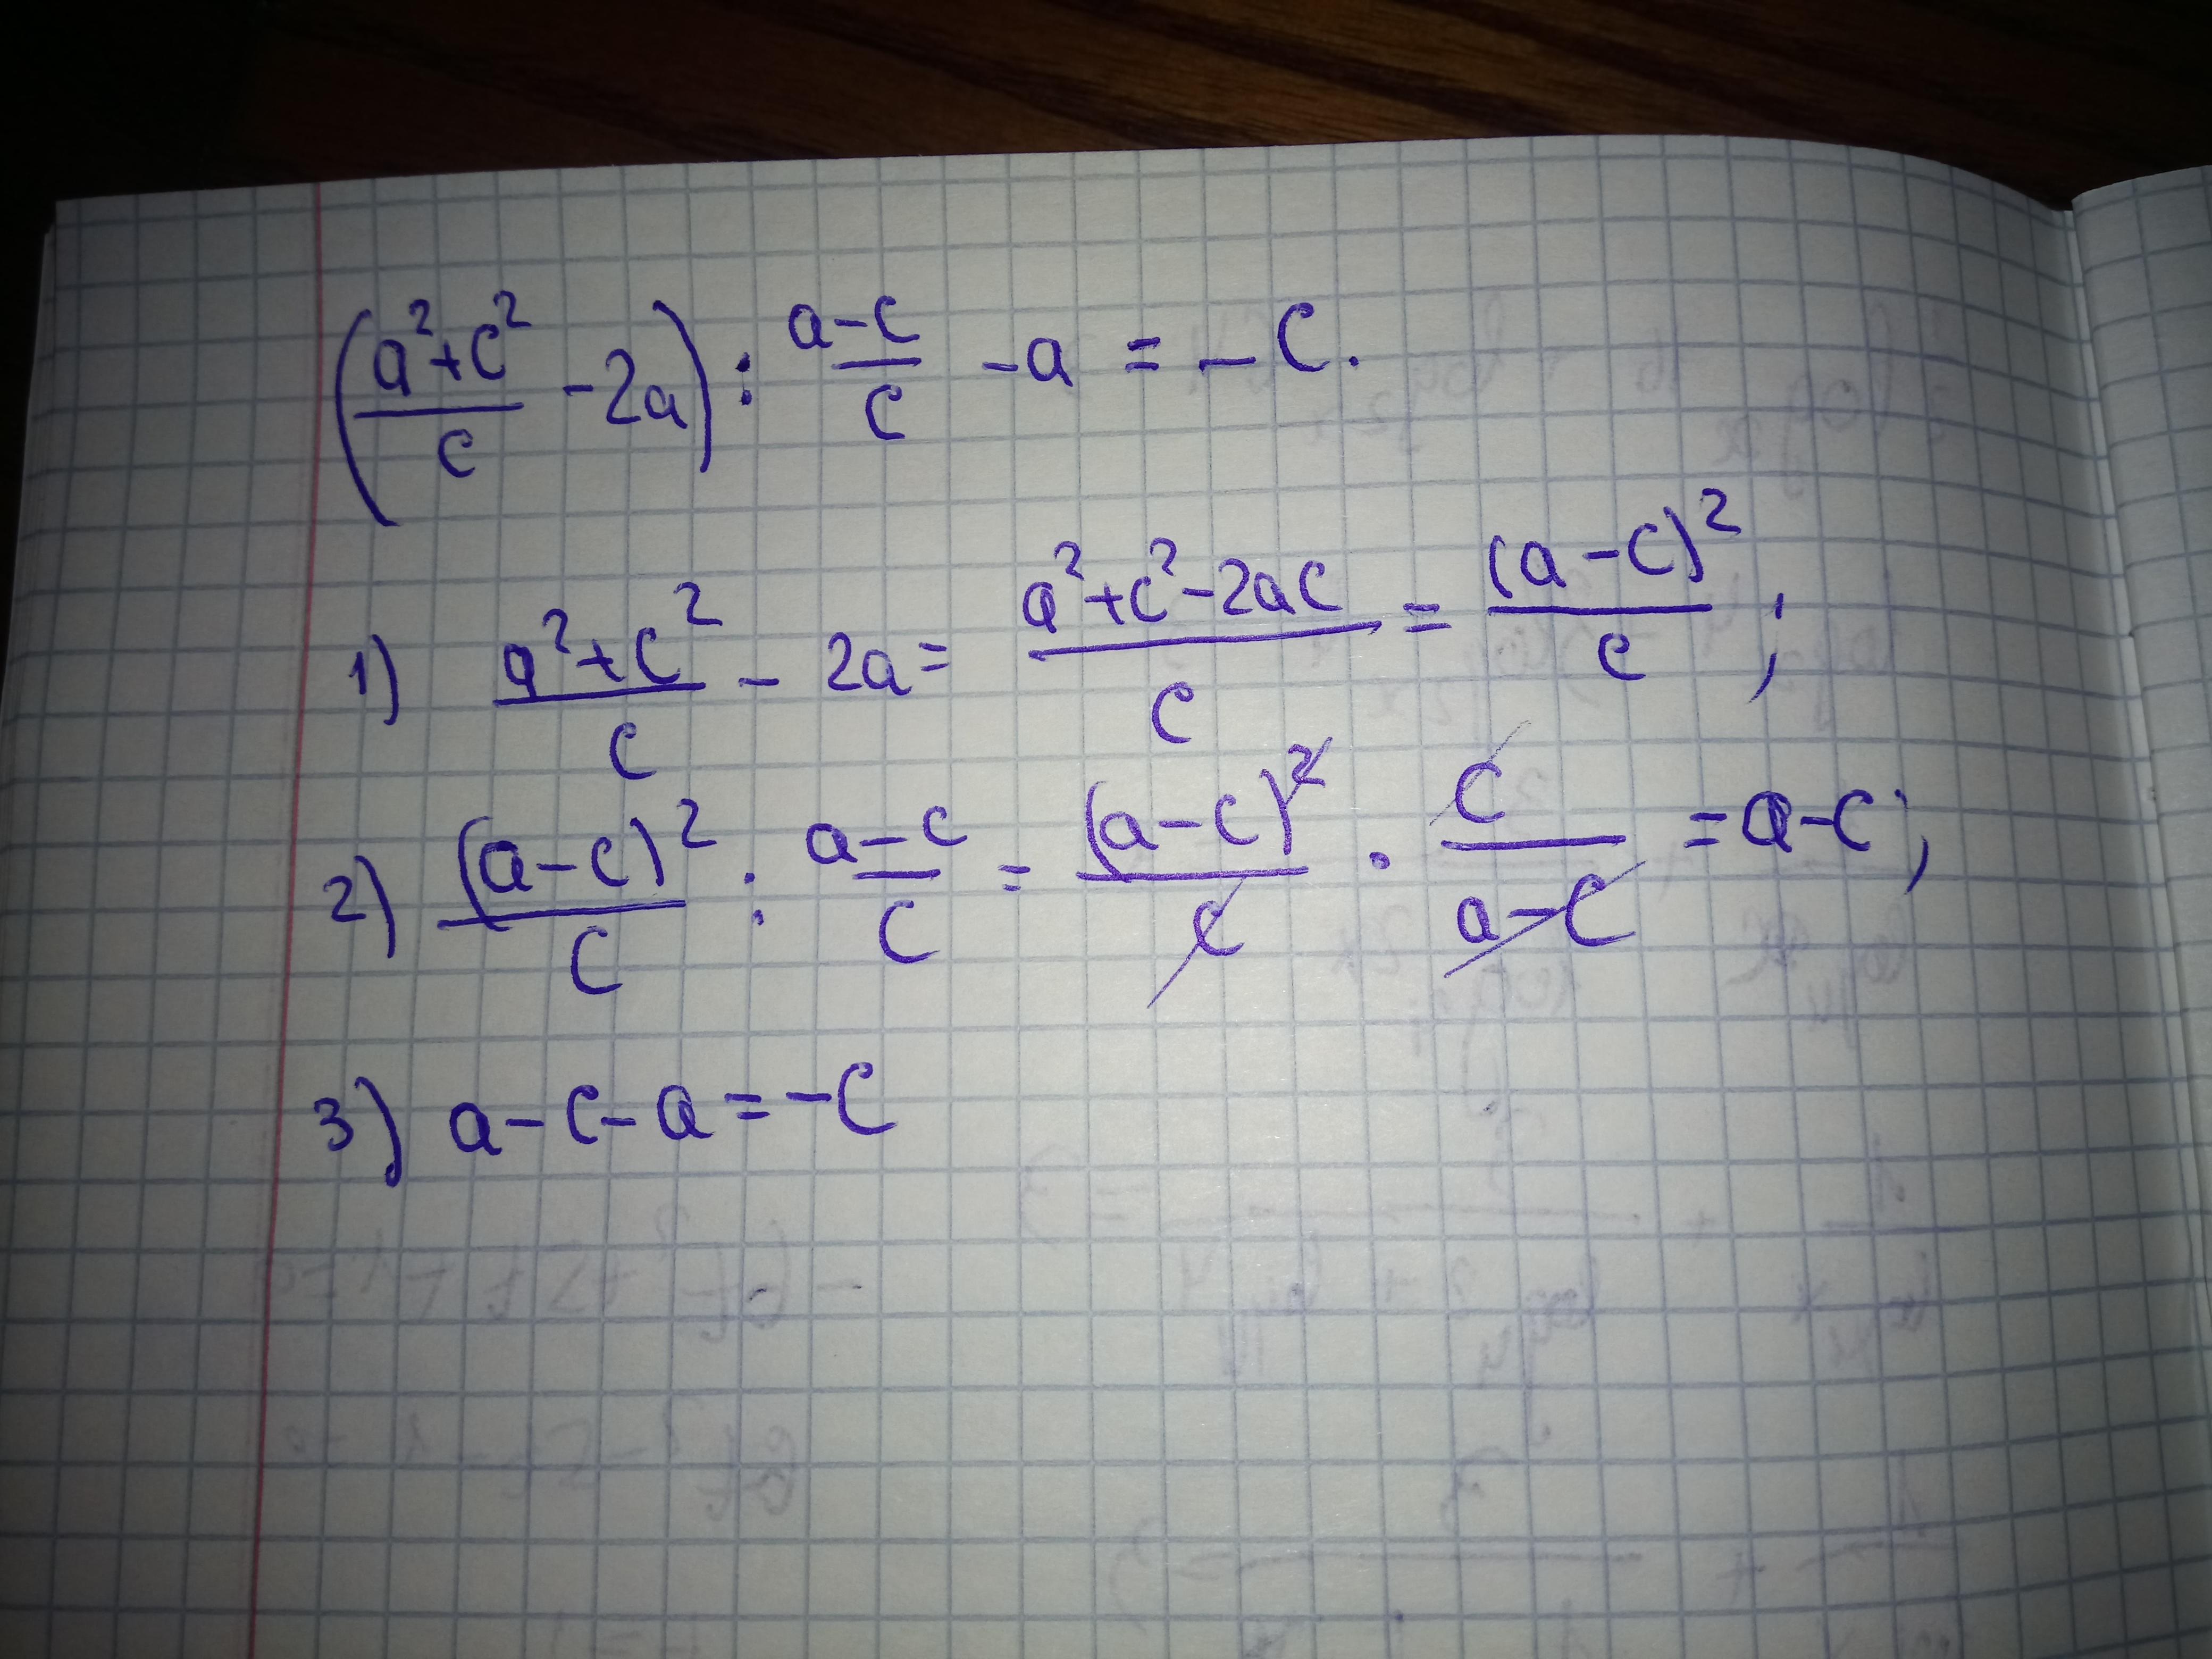 (a²+c²/c - 2a) : a-c/c - a = -c.
1) a²+c²/c - 2a = a²+c²-2ac/c = (a-c)²/c ;
2) (a-c)²/c : a-c/c = (a-c)²/c · c/a-c = a-c ;
3) a-c-a=-c